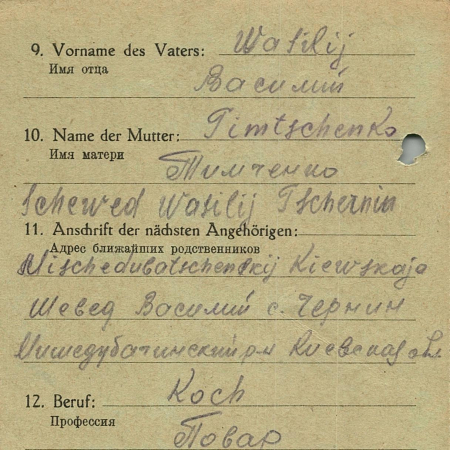 9. Vorname des Vaters: Wasilij
Имя отца
Василий
10. Name der Mutter: Timtschenko
Имя матери
Тимченко
Schewed Wasilij Tschernin
11. Anschrift der nächsten Angehörigen:
Адрес ближайших родственников
Mischedubatschenskij Kiewskaja
Шевед Василий с. Чернин
Мишедубачинский р-н Киевская обл
12. Beruf: Koch
Профессия
Повар